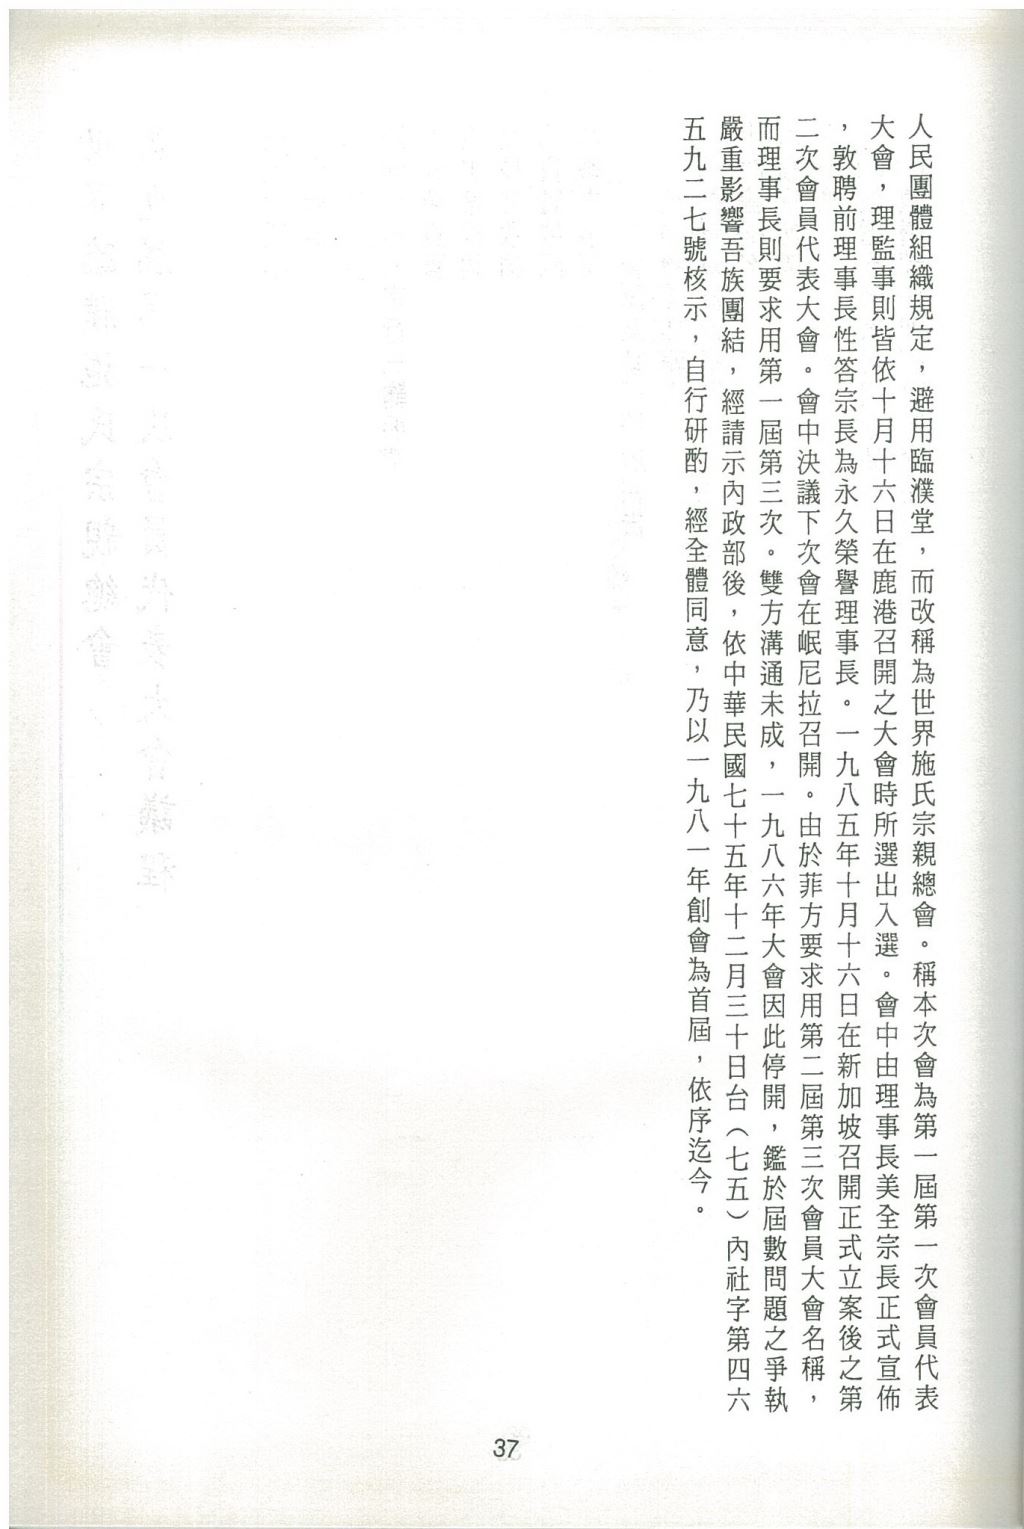 人民團體組織規定，避用臨濮堂，而改稱為世界施氏宗親總會。稱本次會為第一屆第一次會員代表
大會，理監事則皆依十月十六日在鹿港召開之大會時所選出入選。會中由理事長美全宗長正式宣佈
，敦聘前理事長性答宗長為永久榮譽理事長。一九八五年十月十六日在新加坡召開正式立案後之第
二次會員代表大會。會中決議下次會在岷尼拉召開。由於菲方要求用第二屆第三次會員大會名稱，
而理事長則要求用第一屆第三次。雙方溝通未成，一九八六年大會因此停開，鑑於屆數問題之爭執
嚴重影響吾族團結，經請示內政部後，依中華民國七十五年十二月三十日台（七五）內社字第四六
五九二七號核示，自行研酌，經全體同意，乃以一九八一年創會為首屆，依序迄今。
37